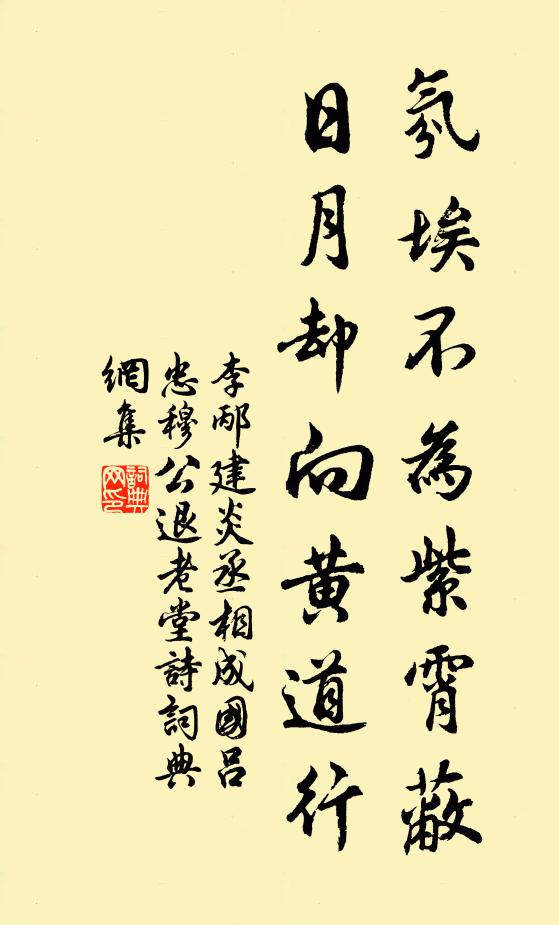 氛埃不為紫霄蔽
日月却向黃道行
李邴建炎丞相成國呂
忠穆公退老堂詩詞典
網集
詞典網印